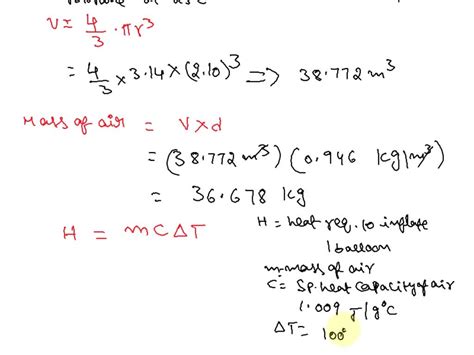 V = 4/3 · πr³
= 4/3 × 3.14 × (2.10)³ ⇒ 38.772 m³
Mass of air = V×d
= (38.772 m³) (0.946 kg/m³)
= 36.678 kg
H = mCΔT
H = heat req. to inflate
1 balloon
m = mass of air
C = sp. heat capacity of air
1.009 J/g°C
ΔT = 100°